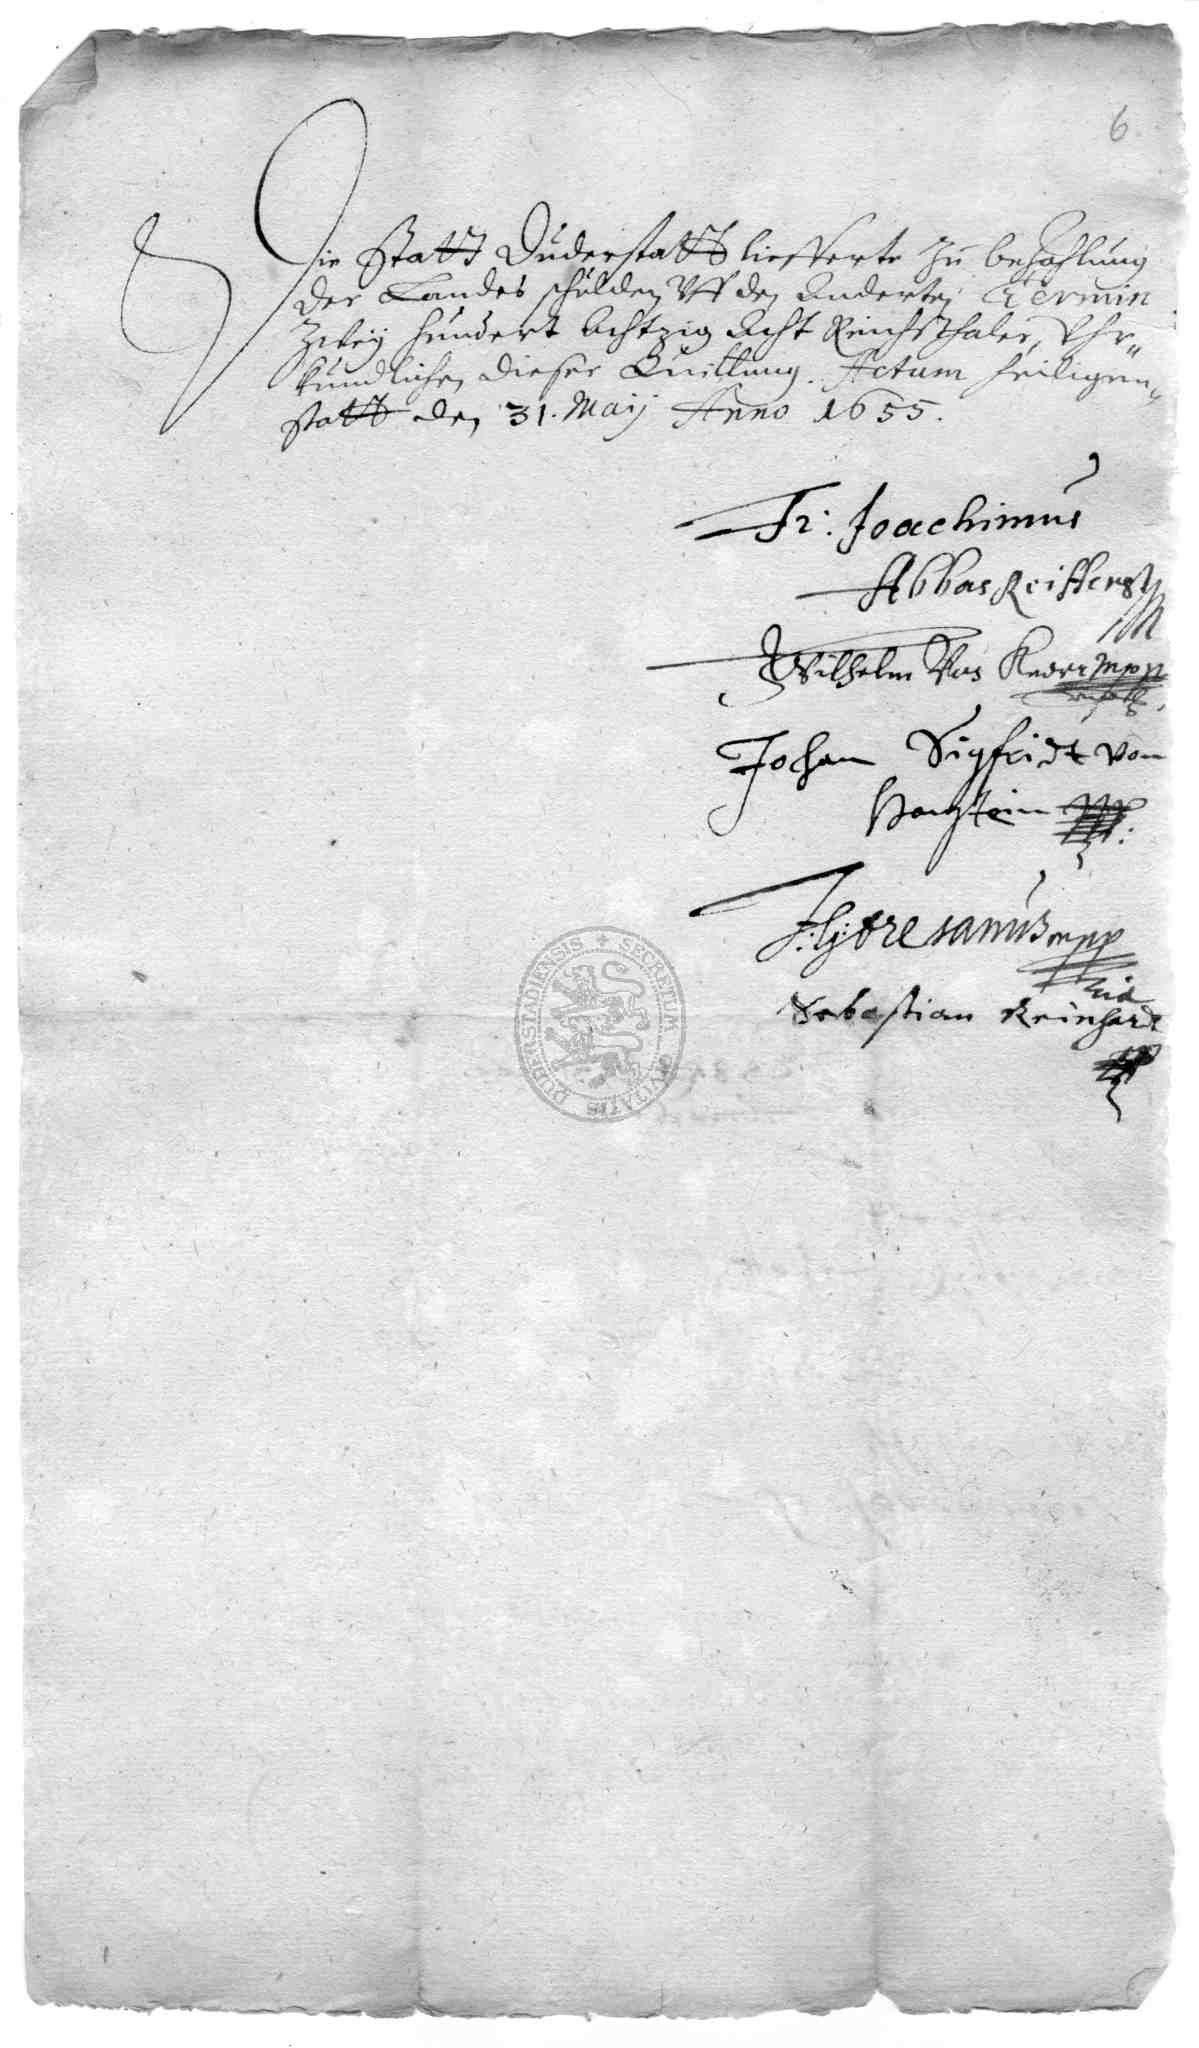 6
Die Statt Duderstatt liefferte zu bezahlung
der Landes schulden Vff den Anderten Termin
Zwey hundert Achtzig Acht Reichsthaler, Vhr„
kundlichen dieser Quittung. Actum Heiligen„
statt den 31. Maij Anno 1655.
Fr: Joachimus
Abbas Reiffenst
Wilhelm Vas mpp
Johan Sigfridt von
Hanstein
mpp
Sebastian Reinhardt
SECRETUM CIVITATIS DUDERSTADIENSIS